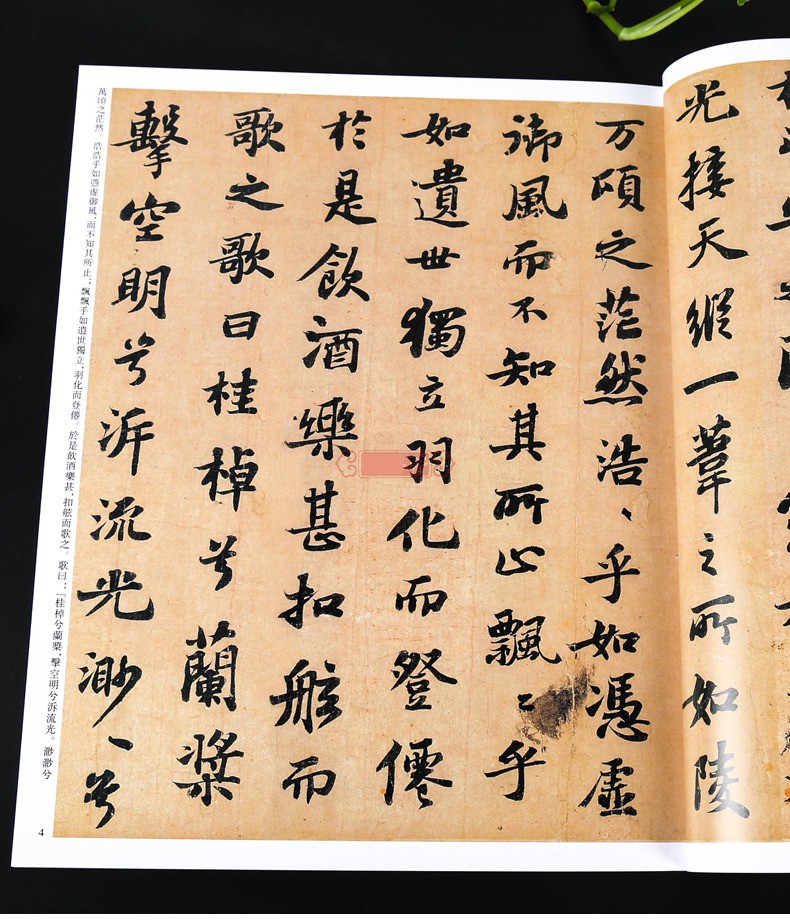 光接天縱一葦之所如陵
万頃之茫然浩〻乎如憑虛
御風而不知其所止飄〻乎
如遺世獨立羽化而登僊
於是飲酒樂甚扣舷而
歌之歌曰桂棹兮蘭槳
擊空明兮泝流光渺〻兮
萬頃之茫然。浩浩乎如憑虛御風,而不知其所止;飄飄乎如遺世獨立,羽化而登僊。於是飲酒樂甚,扣舷而歌之。歌曰:『桂棹兮蘭槳,擊空明兮泝流光。渺渺兮
4